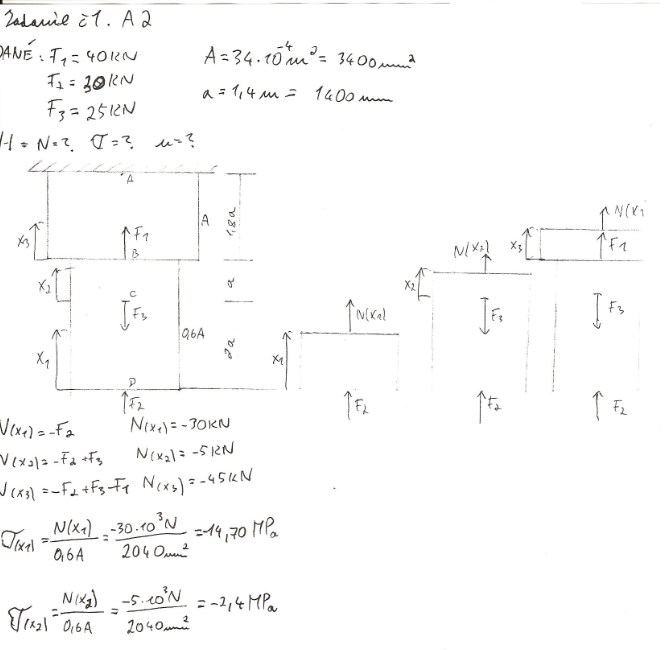 Zadanie č1. A2
DANÉ: F1 = 40KN
F2 = 30KN
F3 = 25KN
A = 34.10^-4 m^2 = 3400mm^2
a = 1,4m = 1400mm
N = ? σ = ? u = ?
A
A
1,8a
x3
F1
B
x2
C
a
F3
0,6A
2a
x1
D
F2
N(x1)
x1
F2
N(x2)
x2
F3
F2
N(x3
x3
F1
F3
F2
N(x1) = -F2
N(x1) = -30KN
N(x2) = -F2 + F3
N(x2) = -5KN
N(x3) = -F2 + F3 - F1
N(x3) = -45KN
σ(x1) = N(x1)/0,6A = -30.10^3N/2040mm^2 = -14,70 MPa
σ(x2) = N(x2)/0,6A = -5.10^3N/2040mm^2 = -2,4 MPa